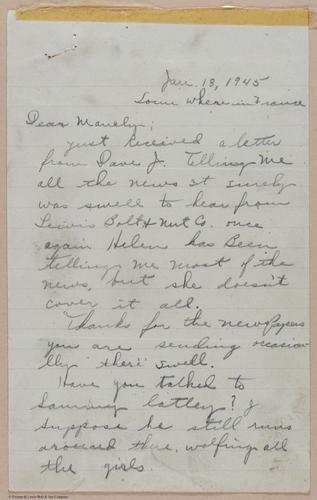 Jan. 18, 1945
Some where in France
Dear Manely;
Just received a letter
from Dave J. Telling Me
all the news It surely
was swell to hear from
Lewis Bolt & Nut Co. once
again Helen has Been
telling me most of the
news, but she doesn't
cover it all.
Thanks for the newspapers
you are sending occasion
lly "there" swell.
Have you talked to
Sammy latley? I
suppose he still runs
around there, wolfing all
the girls.